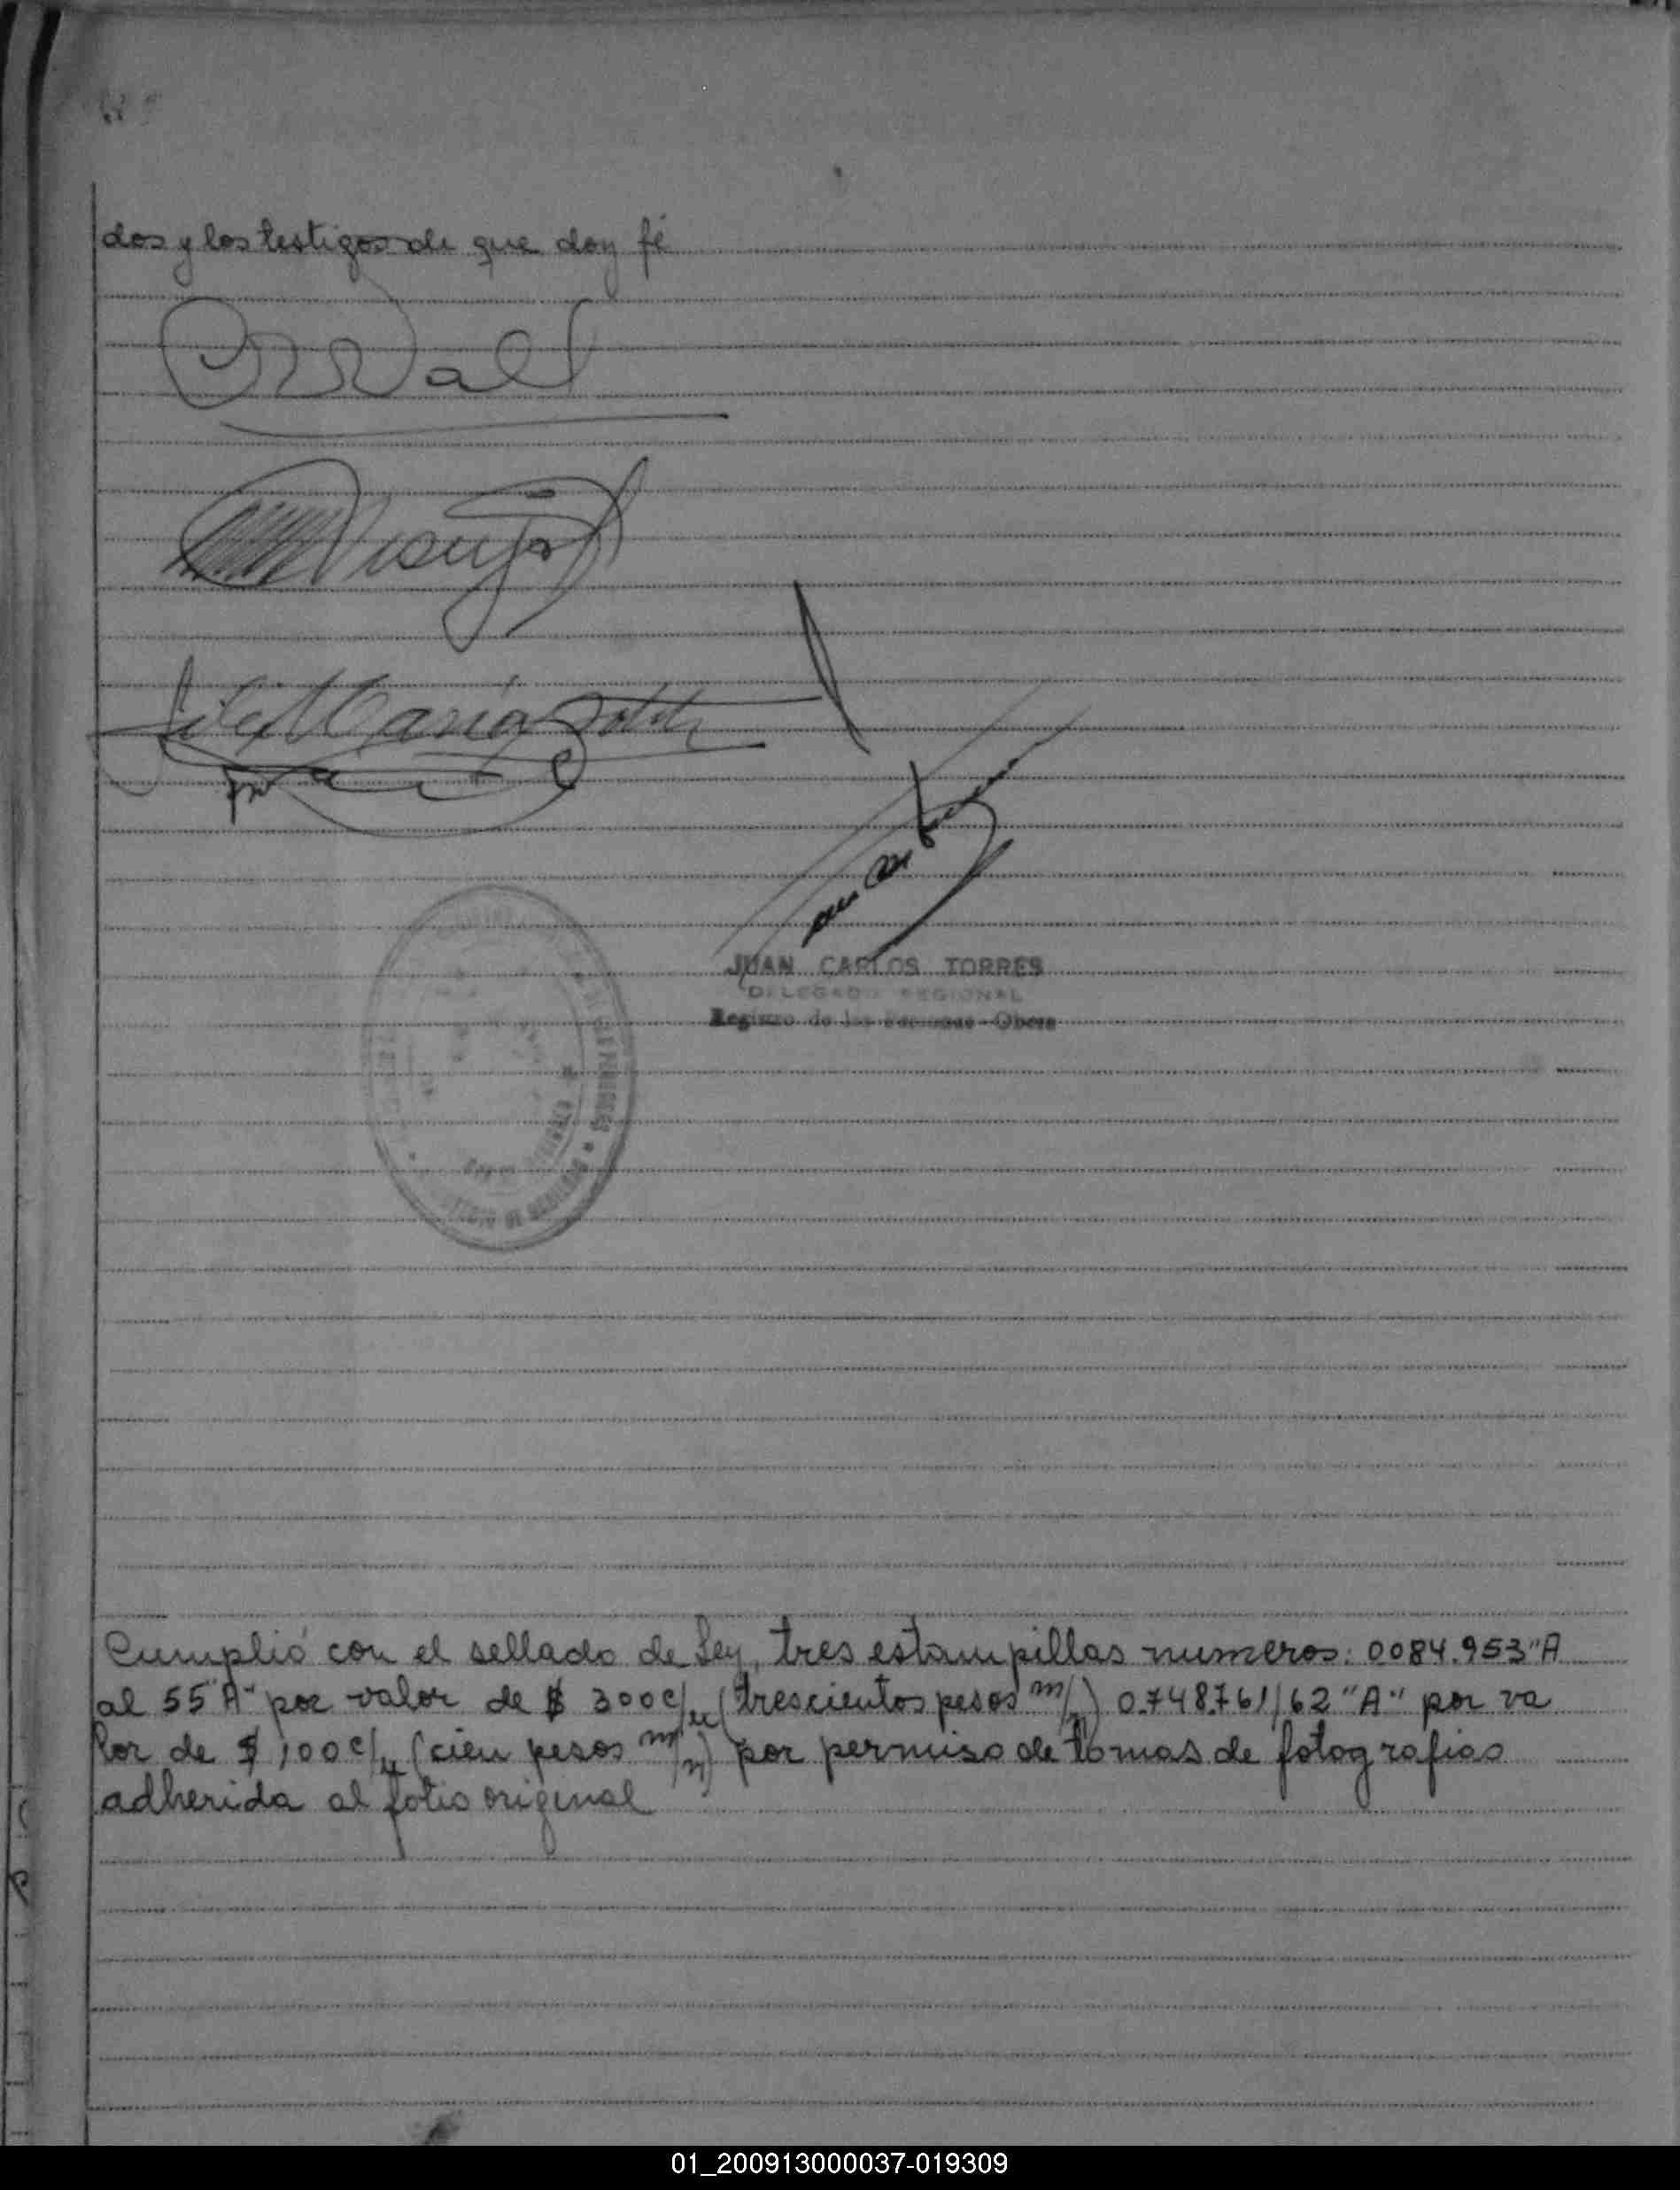 dos y los testigos de que doy fé
JUAN CARLOS TORRES
DELEGADO REGIONAL
Registro de las Personas - Obera
Cumplió con el sellado de Ley, tres estampillas numeros: 0084.953"A
al 55"A" por valor de $ 300 c/u (trescientos pesos m/n) 0.748.761/62 "A" por va
lor de $ 100 c/u (cien pesos m/n) por permiso de tomas de fotografias
adherida al folio original
01_200913000037-019309